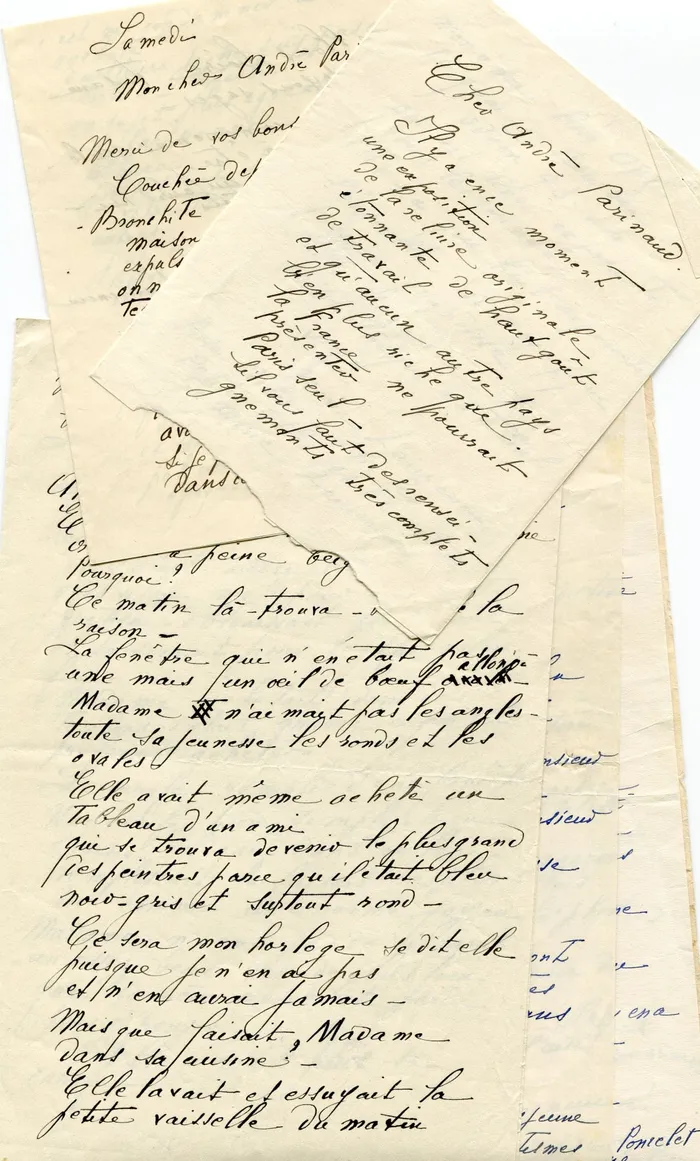 Samedi
Mon cher André Par
Merci de vos bons
Couchée dep
- Bronchite
maison
expuls
on n
Te
av
si je
Dans
Cher André Parinaud.
Il y a en ce moment
une exposition
de la reliure originale
étonnante de haut goût
de travail
et qu'aucun autre pays
bien plus riche que
la France ne pourrait
présenter
Paris seul
s'il vous faut des rensei-
gnements très complets
à peine
Pourquoi?
Ce matin là - trouva - la
raison -
La fenêtre qui n'en était pas
une mais un œil de bœuf allongé -
Madame n'aimait pas les angles -
toute sa jeunesse les ronds et les
ovales -
Elle avait même acheté un
Tableau d'un ami
qui se trouva devenir le plus grand
des peintres parce qu'il était bleu
noir - gris et surtout rond -
Ce sera mon horloge se dit elle
puisque je n'en ai pas
et n'en aurai jamais -
Mais que faisait, Madame
dans sa cuisine? -
Elle lavait et essuyait la
petite vaisselle du matin
ne
nsieur
sieur
se
s
ne
ont
es
ans
ena
jeune
tismes
Poncelet